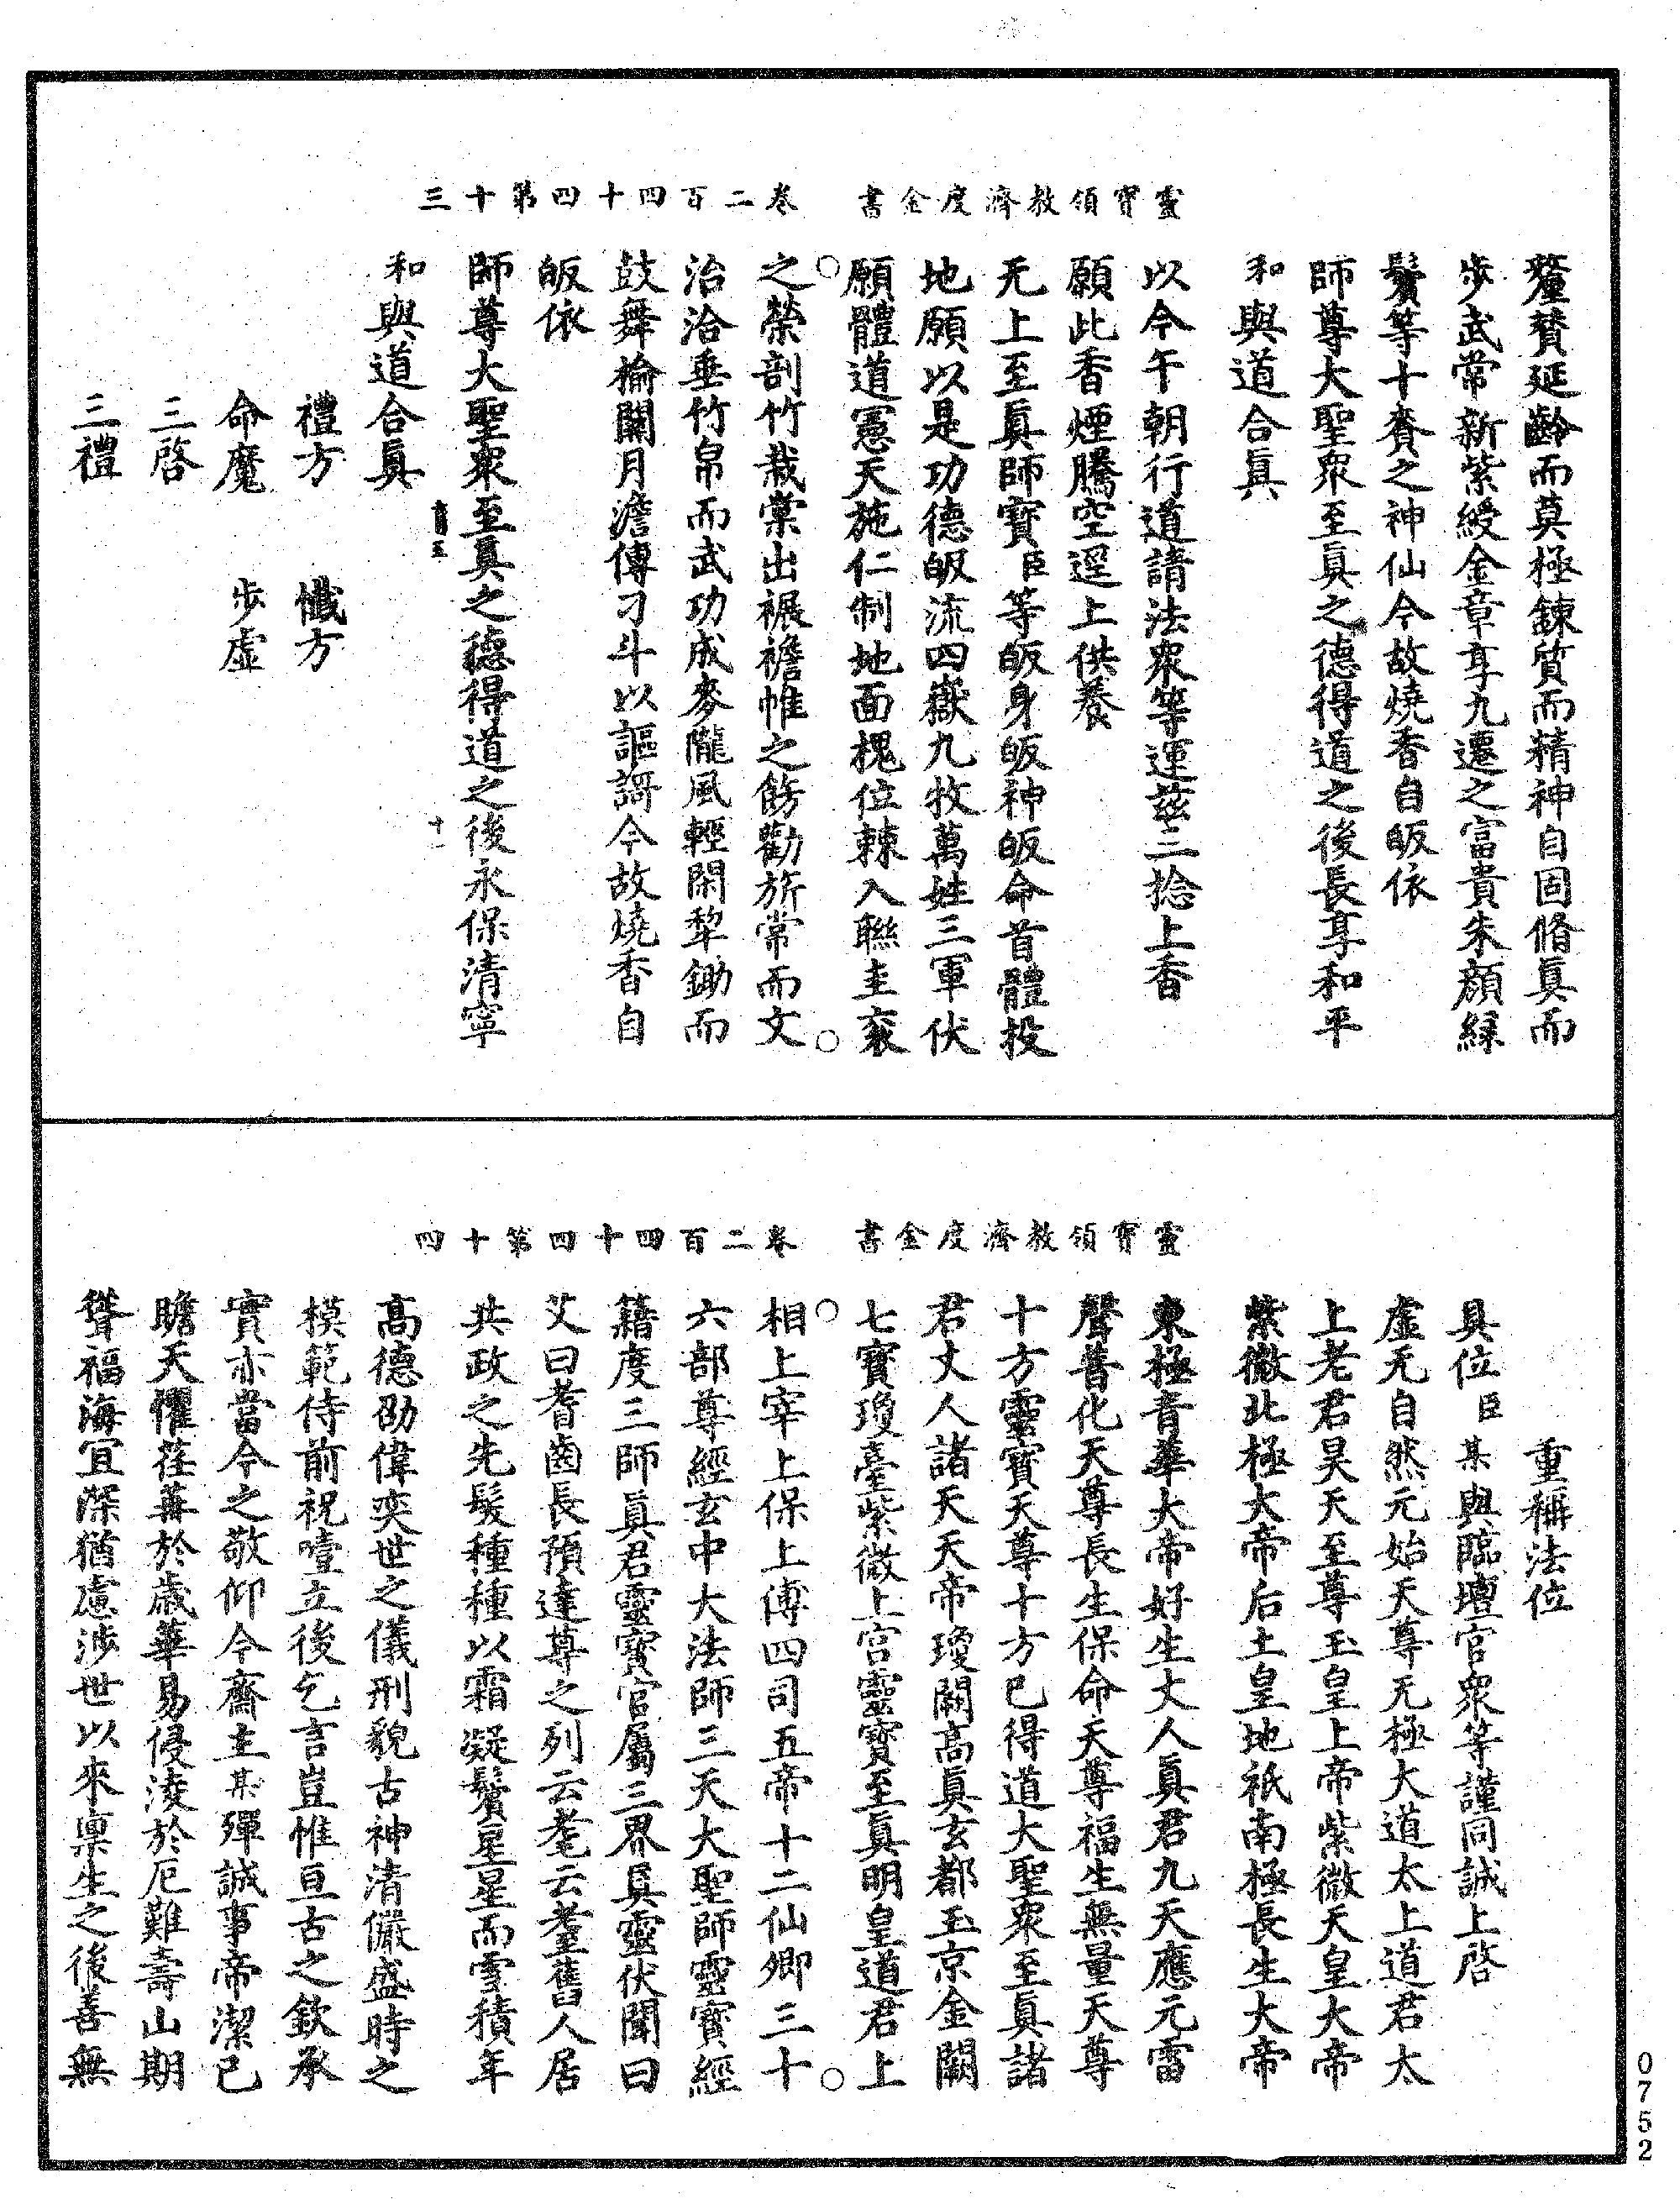 靈寶領教濟度金書　卷二百四十四第十三
釐賛延齡而莫極鍊質而精神自固脩眞而
步武常新紫綬金章享九遷之富貴朱顔緑
鬢等十賚之神仙今故燒香自皈依
師尊大聖衆至眞之德得道之後長享和平
和與道合眞
以今午朝行道請法衆等運茲三捻上香
願此香煙騰空遥上供養
无上至眞師寶臣等皈身皈神皈命首體投
地願以是功德皈流四嶽九牧萬姓三軍伏
願體道憲天施仁制地面槐位棘入聯圭衮
之榮剖竹栽棠出襜帷之餙勸旂常而文
治洽垂竹帛而武功成麥隴風輕閑犂鋤而
鼓舞榆關月澹傳刁斗以謳謌今故燒香自
皈依
師尊大聖衆至眞之德得道之後永保清寧
和與道合眞
禮方　懺方
命魔　步虚
三啓
三禮
靈寶領教濟度金書　卷二百四十四第十四
重稱法位
具位臣某與臨壇官衆等謹同誠上啓
虚无自然元始天尊无極大道太上道君太
上老君昊天至尊玉皇上帝紫微天皇大帝
紫微北極大帝后土皇地祇南極長生大帝
東極青華大帝好生丈人眞君九天應元雷
聲普化天尊長生保命天尊福生無量天尊
十方靈寶天尊十方已得道大聖衆至眞諸
君丈人諸天天帝瓊闕高眞玄都玉京金闕
七寶瓊臺紫微上宮靈寶至眞明皇道君上
相上宰上保上傅四司五帝十二仙卿三十
六部尊經玄中大法師三天大聖師靈寶經
籍度三師眞君靈寶官屬三界眞靈伏聞曰
艾曰耆齒長預達尊之列云耄云耋舊人居
共政之先髮種種以霜凝鬢星星而雪積年
高德劭偉奕世之儀刑貌古神清儼盛時之
模範侍前祝噎立後乞言豈惟亘古之欽承
實亦當今之敬仰今齋主某殫誠事帝潔己
瞻天懼荏苒於歳華易侵淩於厄難壽山期
聳福海宜深猶慮涉世以來稟生之後善無
0752